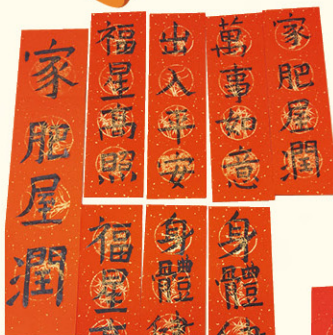 家肥屋潤
福星高照
出入平安
萬事如意
家肥屋潤
福星
身體
身體